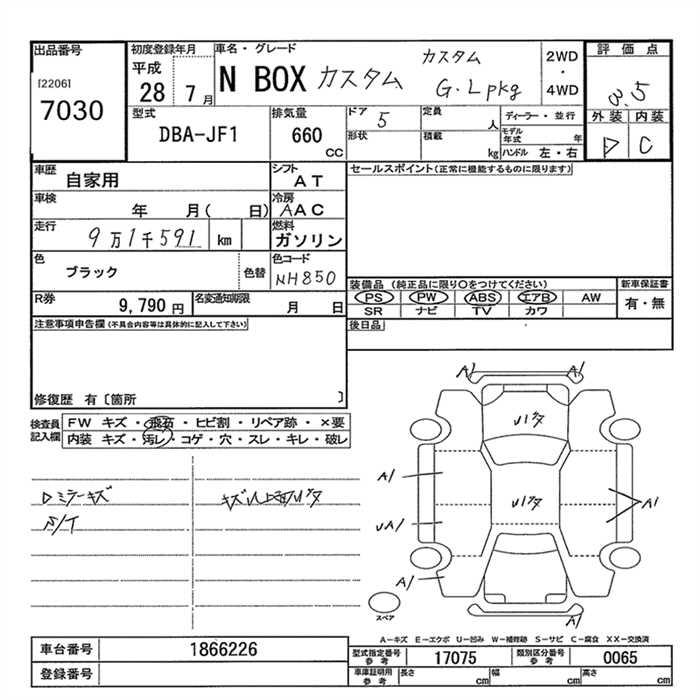 出品番号
[2206]
7030
初度登録年月
平成
28 7月
車名・グレード
N BOX カスタム
カスタム
G.Lpkg
2WD
・
4WD
評価点
3.5
外装 内装
D C
型式
DBA-JF1
排気量
660
CC
ドア 5
形状
定員 人
積載 kg
ディーラー・並行
モデル年式 年
ハンドル 左・右
車歴
自家用
シフト
AT
車検
年 月( 日)
冷房
AAC
走行
9万1千591 km
燃料
ガソリン
色
ブラック
色替
色コード
NH850
R券
9,790 円
名変通知期限
月 日
セールスポイント(正常に機能するものに限ります)
装備品 (純正品に限り○をつけてください)
PS PW ABS エアB AW
SR ナビ TV カワ
新車保証書
有・無
後日品
注意事項申告欄 (不具合内容等は具体的に記入して下さい)
修復歴 有〔箇所 〕
検査員
記入欄
FW キズ・飛石・ヒビ割・リペア跡・×要
内装 キズ・汚レ・コゲ・穴・スレ・キレ・破レ
Dミラーキズ
S/T
A1 A1
A1
UA1
A1
A1
A1
スペア
A−キズ E−エクボ U−凹み W−補修跡 S−サビ C−腐食 XX−交換済
車台番号
1866226
登録番号
型式指定番号
参考
17075
類別区分番号
参考
0065
車庫証明用
参考
長さ cm
幅 cm
高さ cm